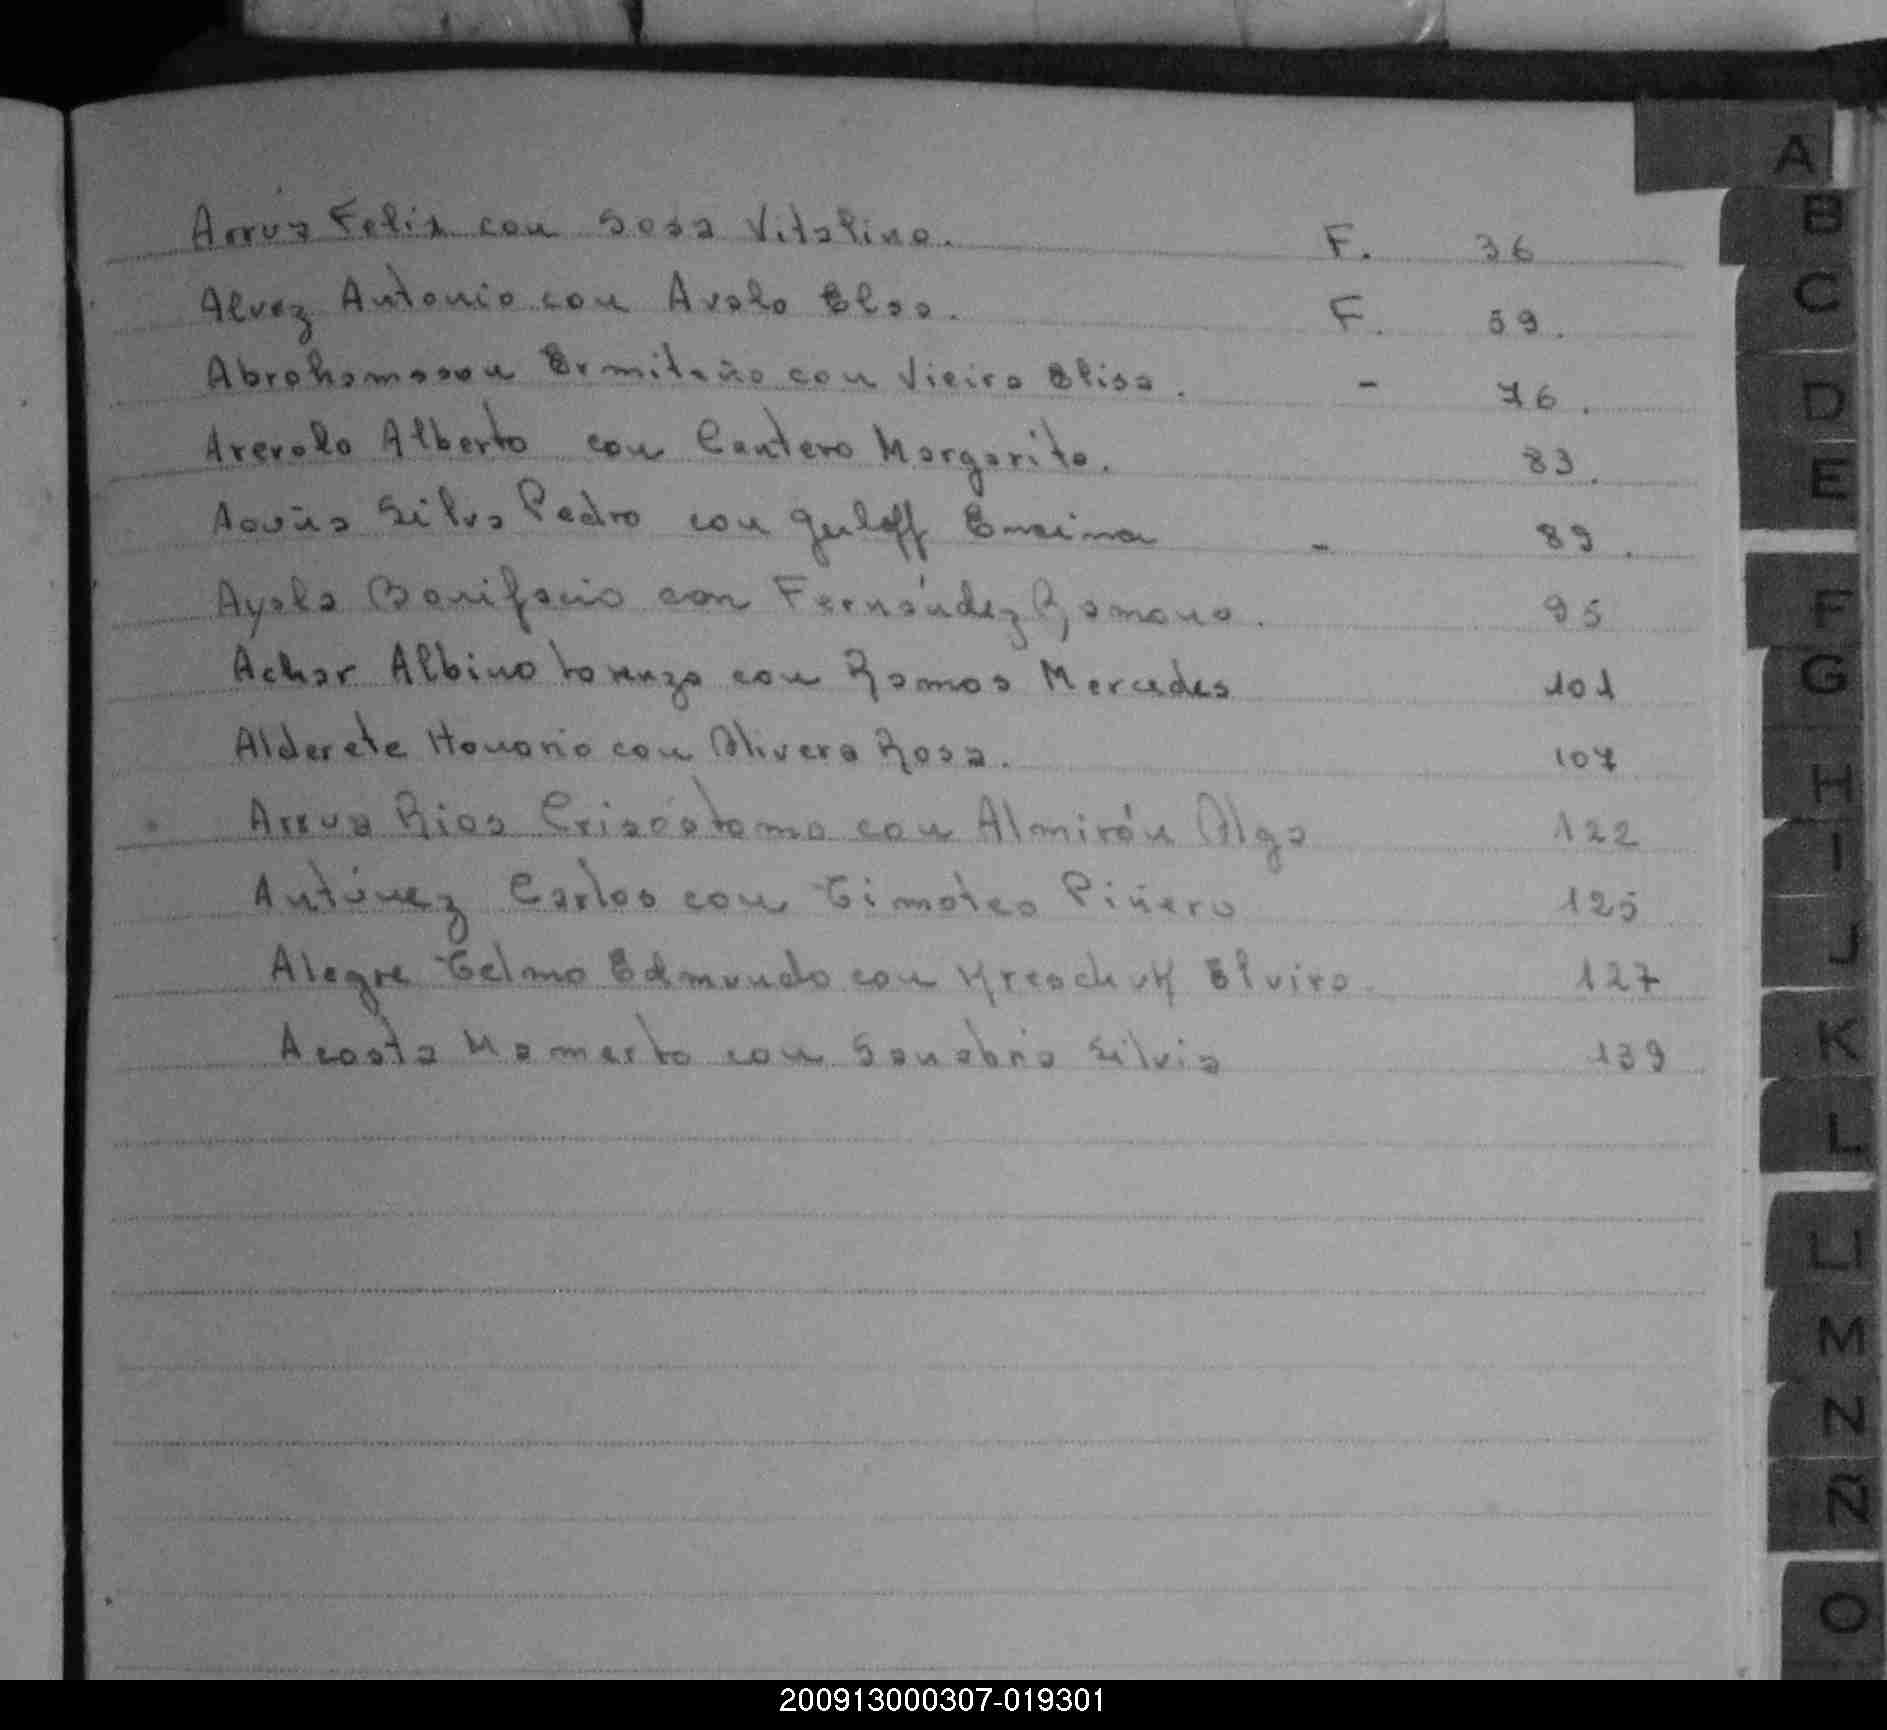 Arrua Felix con Sosa Vitalina. F. 36
Alvez Antonio con Avalo Elsa. F. 59.
Abrahamson con Vieira Elisa. - 76.
Arevalo Alberto con Cantero Margarita. 83.
Silva Pedro con - 89.
Ayala Bonifacio con Fernández Ramona. 95
Achar Albino Lorenzo con Ramos Mercedes 101
Alderete Honorio con Olivera Rosa. 107
Arrua Rios Crisóstomo con Almirón Olga 122
Antúnez Carlos con Timotea Piñero 125
Alegre Telmo Edmundo con Kreschuk Elvira. 127
Acosta Mamerto con Sanabria Silvia 139
A
B
C
D
E
F
G
H
I
J
K
L
LL
M
N
Ñ
O
200913000307-019301